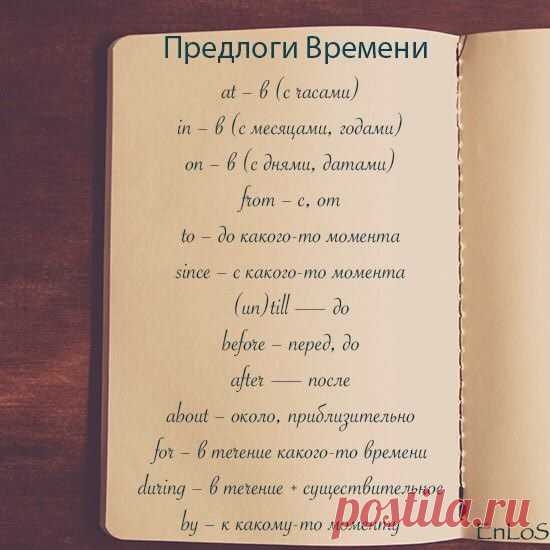 Предлоги Времени
at – в (с часами)
in – в (с месяцами, годами)
on – в (с днями, датами)
from – с, от
to – до какого-то момента
since – с какого-то момента
(un)till — до
before – перед, до
after — после
about – около, приблизительно
for – в течение какого-то времени
during – в течение + существительное
by – к какому-то моменту
postila.ru
EnLoS